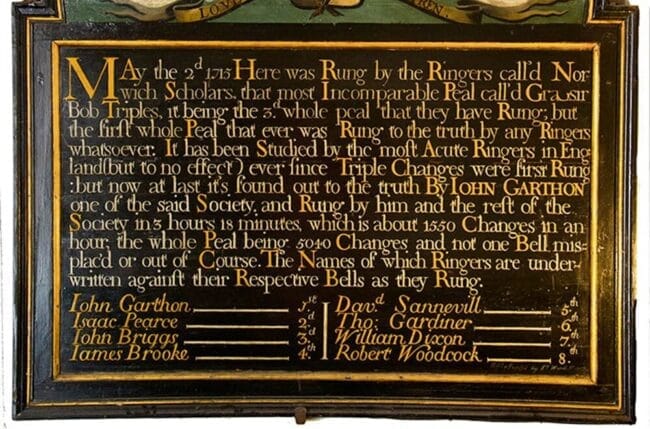 MAy the 2d 1715 Here was Rung by the Ringers call'd Nor-
wich Scholars, that most Incomparable Peal call'd Gransir
Bob Triples, it being the 3.d whole peal that they have Rung; but
the firſt whole Peal that ever was Rung to the truth by any Ringers
whatsoever. It has been Studied by the moſt Acute Ringers in Eng-
land (but to no effect) ever ſince Triple Changes were first Rung
: but now at last it's found out to the truth By IOHN GARTHON
one of the said Society, and Rung by him and the reſt of the
Society in 3 hours 18 minutes, which is about 1550 Changes in an
hour, the whole Peal being 5040 Changes and not one Bell mis-
plac'd or out of Course. The Names of which Ringers are under-
written againſt their Respective Bells as they Rung.
Iohn Garthon 1st
Isaac Pearce 2d
Iohn Briggs 3d
Iames Brooke 4th
Davd. Sannevill 5th
Tho: Gardiner 6th
William Dixon 7th
Robert Woodcock 8.th